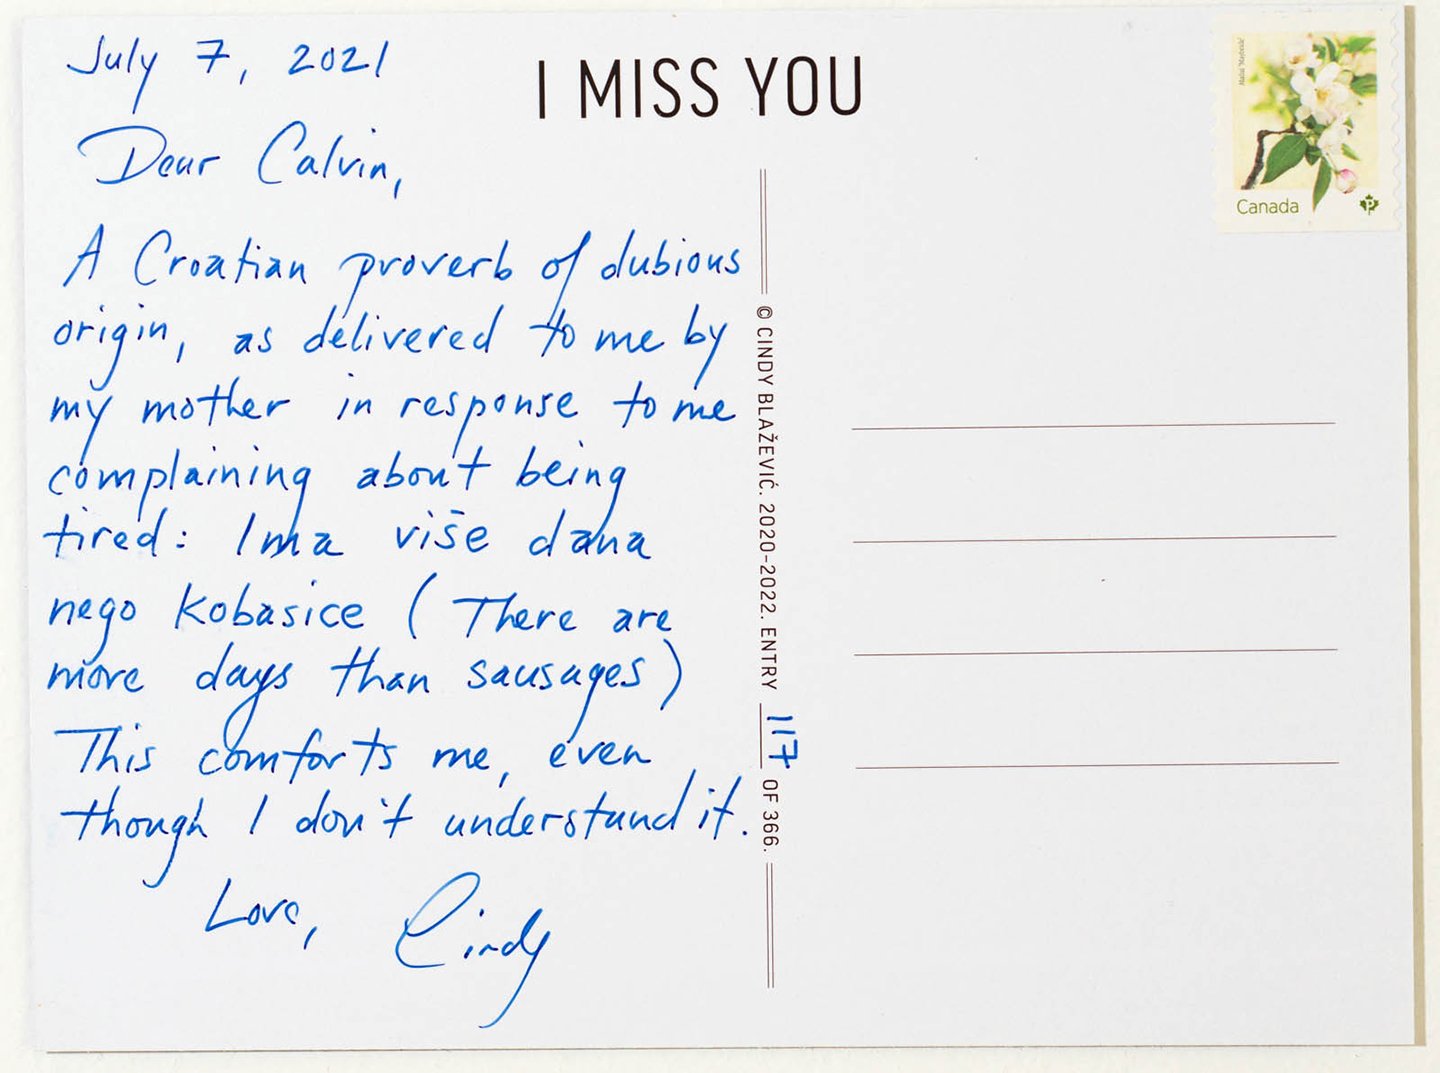 July 7, 2021
I MISS YOU
Dear Calvin,
A Croatian proverb of dubious
origin, as delivered to me by
my mother in response to me
complaining about being
tired: Ima više dana
nego kobasice (There are
more days than sausages)
This comforts me, even
though I don't understand it.
Love, Cindy
© CINDY BLAŽEVIĆ. 2020-2022. ENTRY 117 OF 366.
Canada
P